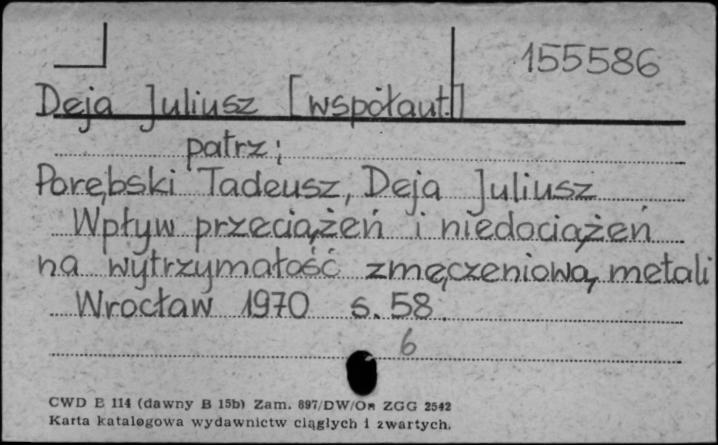 155586
Deja Juliusz [współaut.]
patrz:
Porębski Tadeusz, Deja Juliusz
Wpływ przeciążeń i niedociążeń
na wytrzymałość zmęczeniową metali
Wrocław 1970 s. 58.
6
CWD E 114 (dawny B 15b) Zam. 897/DW/On ZGG 2542
Karta katalogowa wydawnictw ciągłych i zwartych.